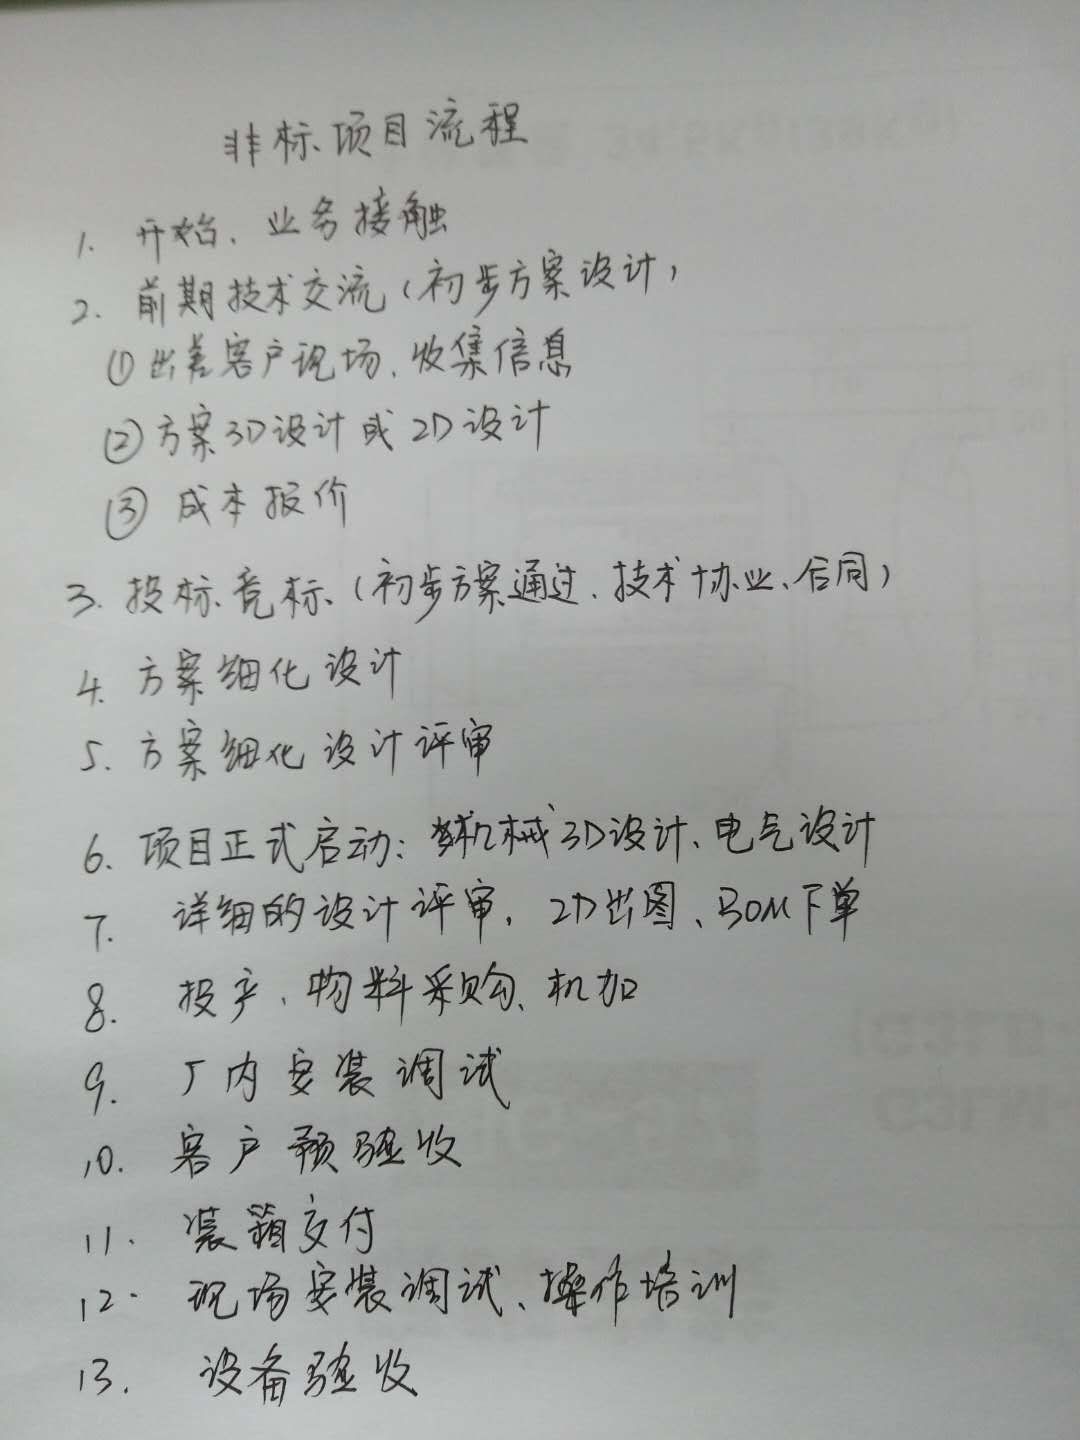 非标项目流程
1. 开始、业务接触
2. 前期技术交流(初步方案设计)
①出差客户现场、收集信息
②方案3D设计或2D设计
③ 成本报价
3. 投标竞标(初步方案通过、技术协业、合同)
4. 方案细化设计
5. 方案细化设计评审
6. 项目正式启动:机械3D设计、电气设计
7. 详细的设计评审,2D出图、BOM下单
8. 投产、物料采购、机加
9. 厂内安装调试
10. 客户预验收
11. 装箱交付
12. 现场安装调试、操作培训
13. 设备验收